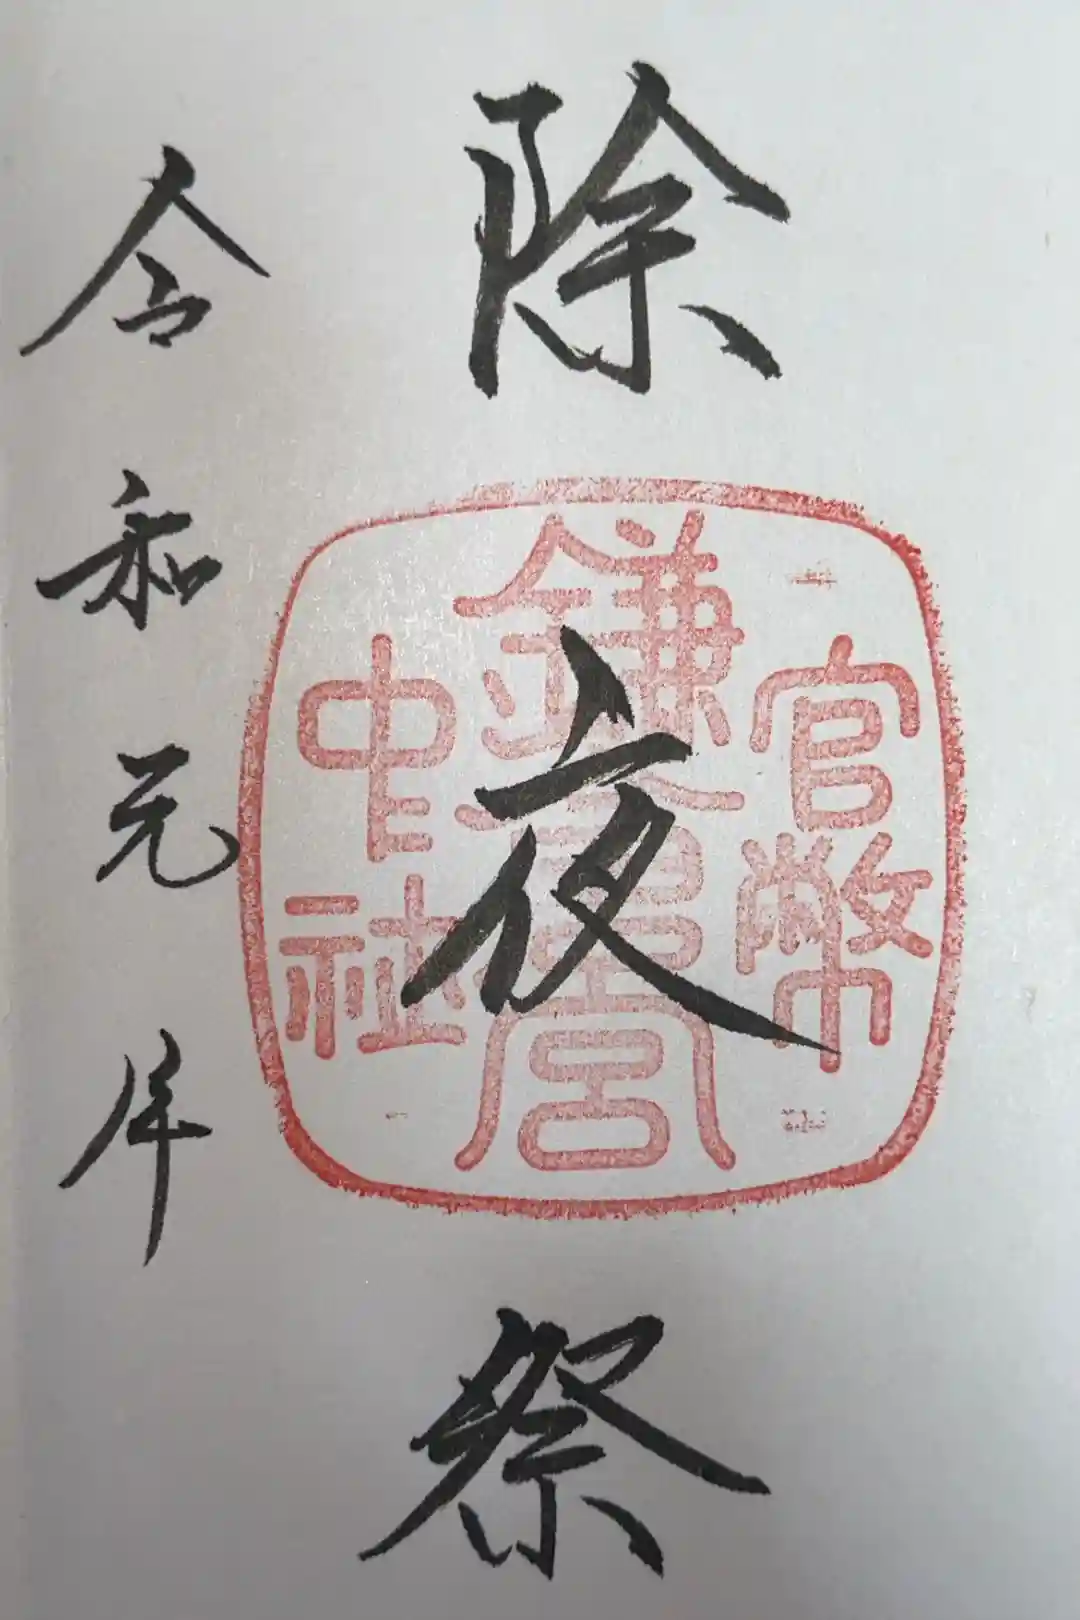 官幣
除夜祭
鎌倉宮
中社
令和元年